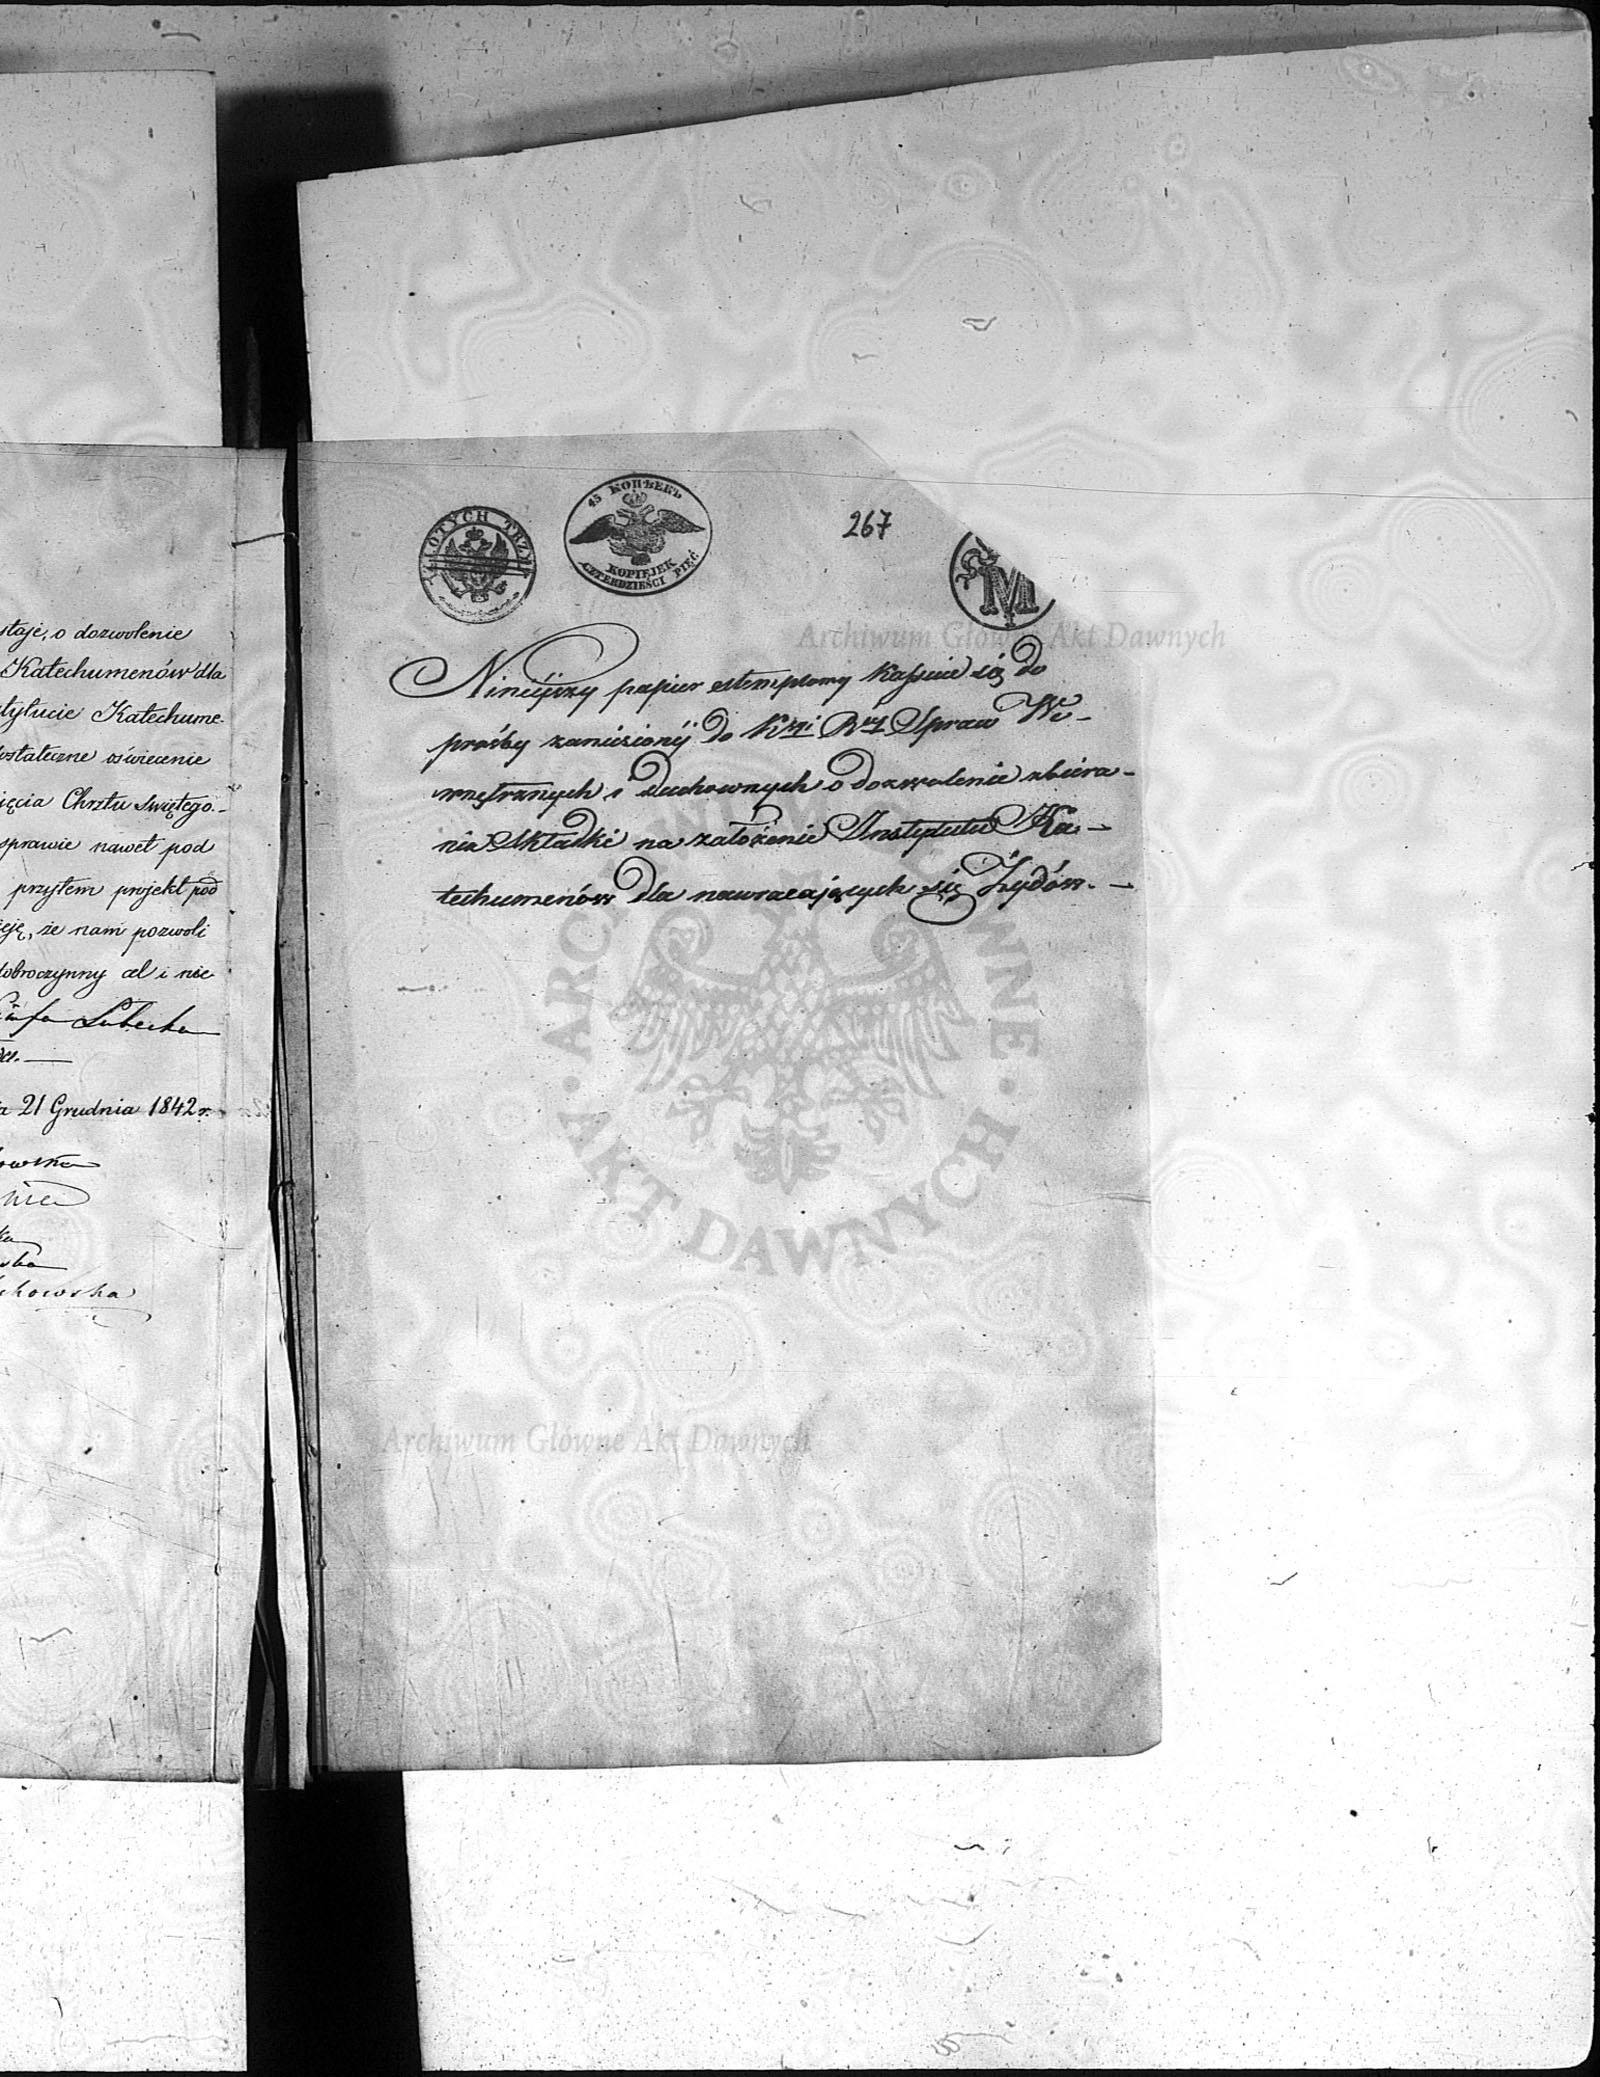 o dozwolenie
Katechumenów dla
Katechume-
oświecenie
Chrztu Świętego.-
sprawie nawet pod
przytem projekt pod
że nam pozwoli
dobroczynny cel i nie
Lubecka
21 Grudnia 1842 r.
ZŁOTYCH TRZY
45 КОПѢЕКЪ
KOPIEJEK
CZTERDZIEŚCI PIĘĆ
267
M
Archiwum Główne Akt Dawnych
Ninieyszy papier stemplowy kassuie się do
prośby zaniesionÿ do Kzyi Rzy Spraw We-
wnętrznych i Duchownych o dozwolenie zbiera-
nia Składki na założenie Instytutu Ka-
techumenów dla nawracających się Żydów.-
ARCHIWUM GŁÓWNE
AKT DAWNYCH
Archiwum Główne Akt Dawnych